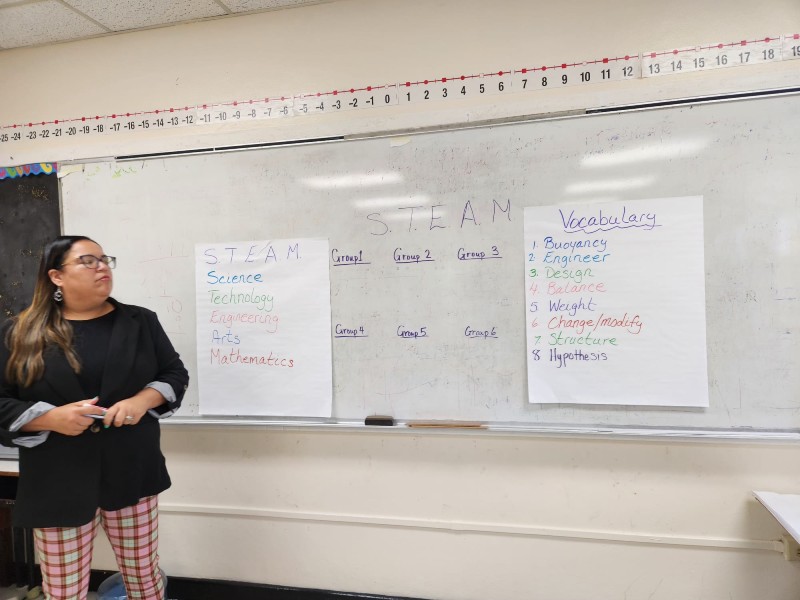 -25 -24 -23 -22 -21 -20 -19 -18 -17 -16 -15 -14 -13 -12 -11 -10 -9 -8 -7 -6 -5 -4 -3 -2 -1 0 1 2 3 4 5 6 7 8 9 10 11 12 13 14 15 16 17 18 19
S.T.E.A.M
S.T.E.A.M.
Science
Technology
Engineering
Arts
Mathematics
Group 1 Group 2 Group 3
Group 4 Group 5 Group 6
Vocabulary
1. Buoyancy
2. Engineer
3. Design
4. Balance
5 Weight
6 Change/modify
7. Structure
8 Hypothesis